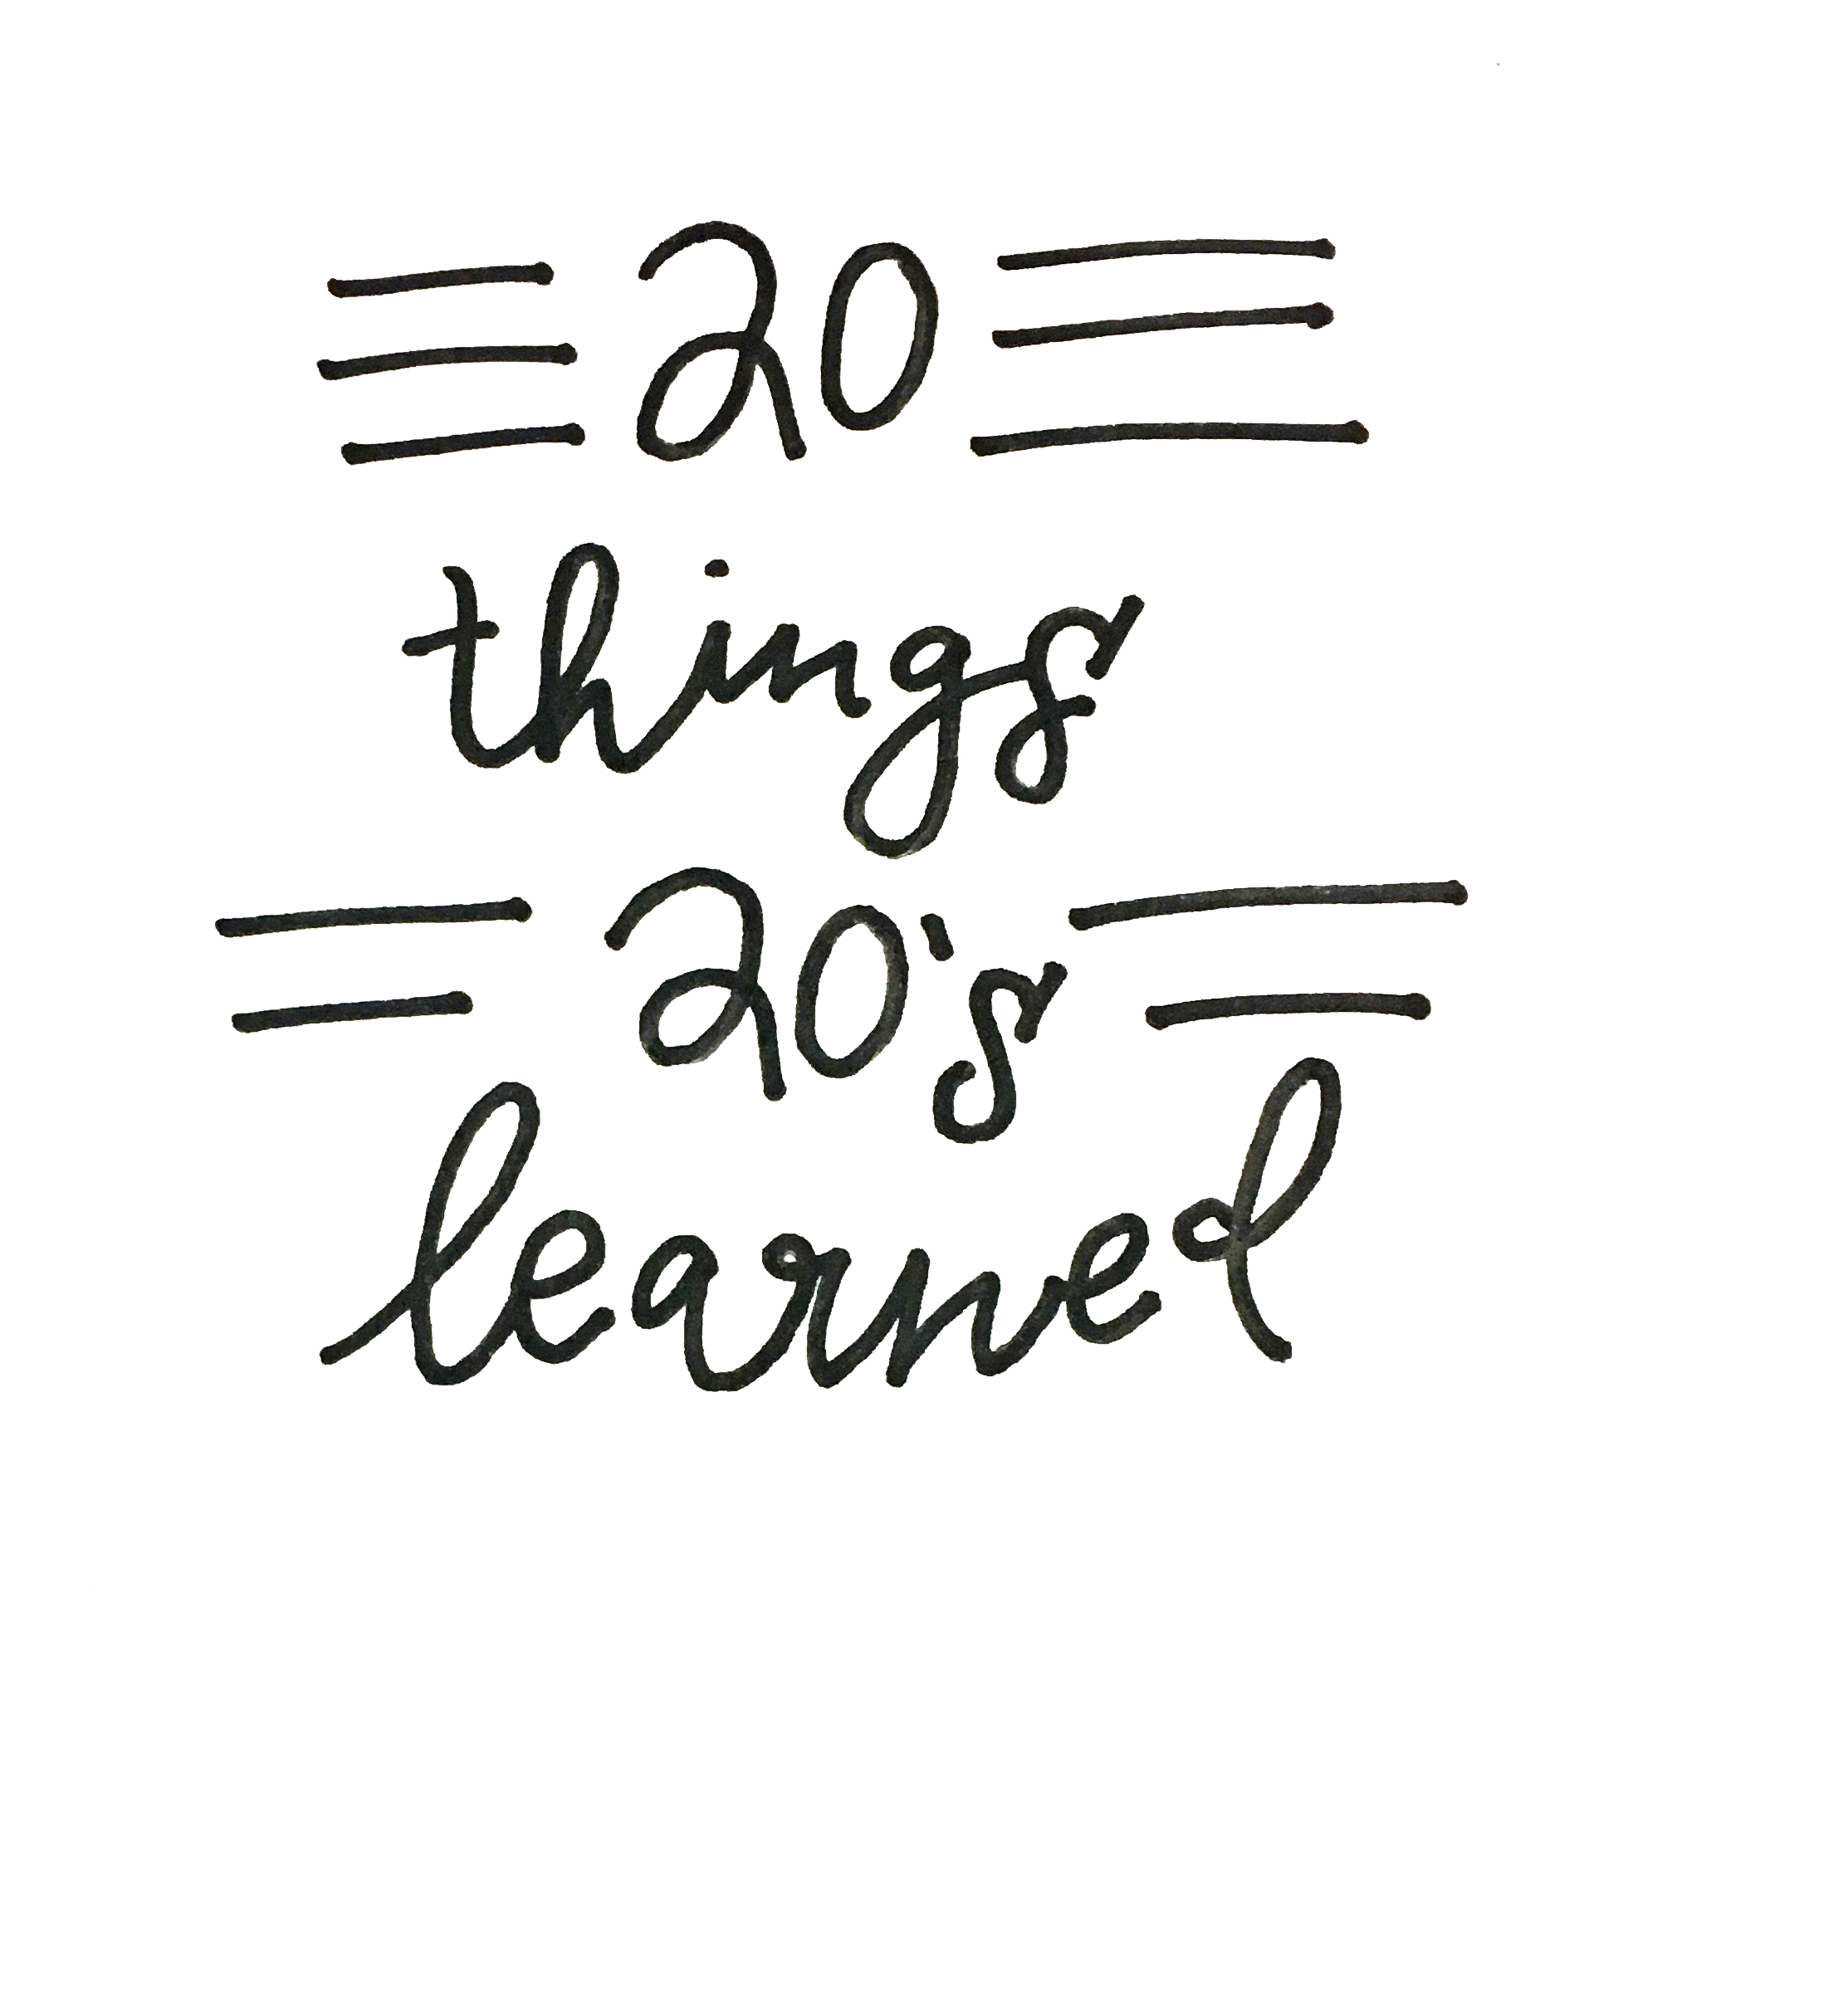 20
things
20's
learned